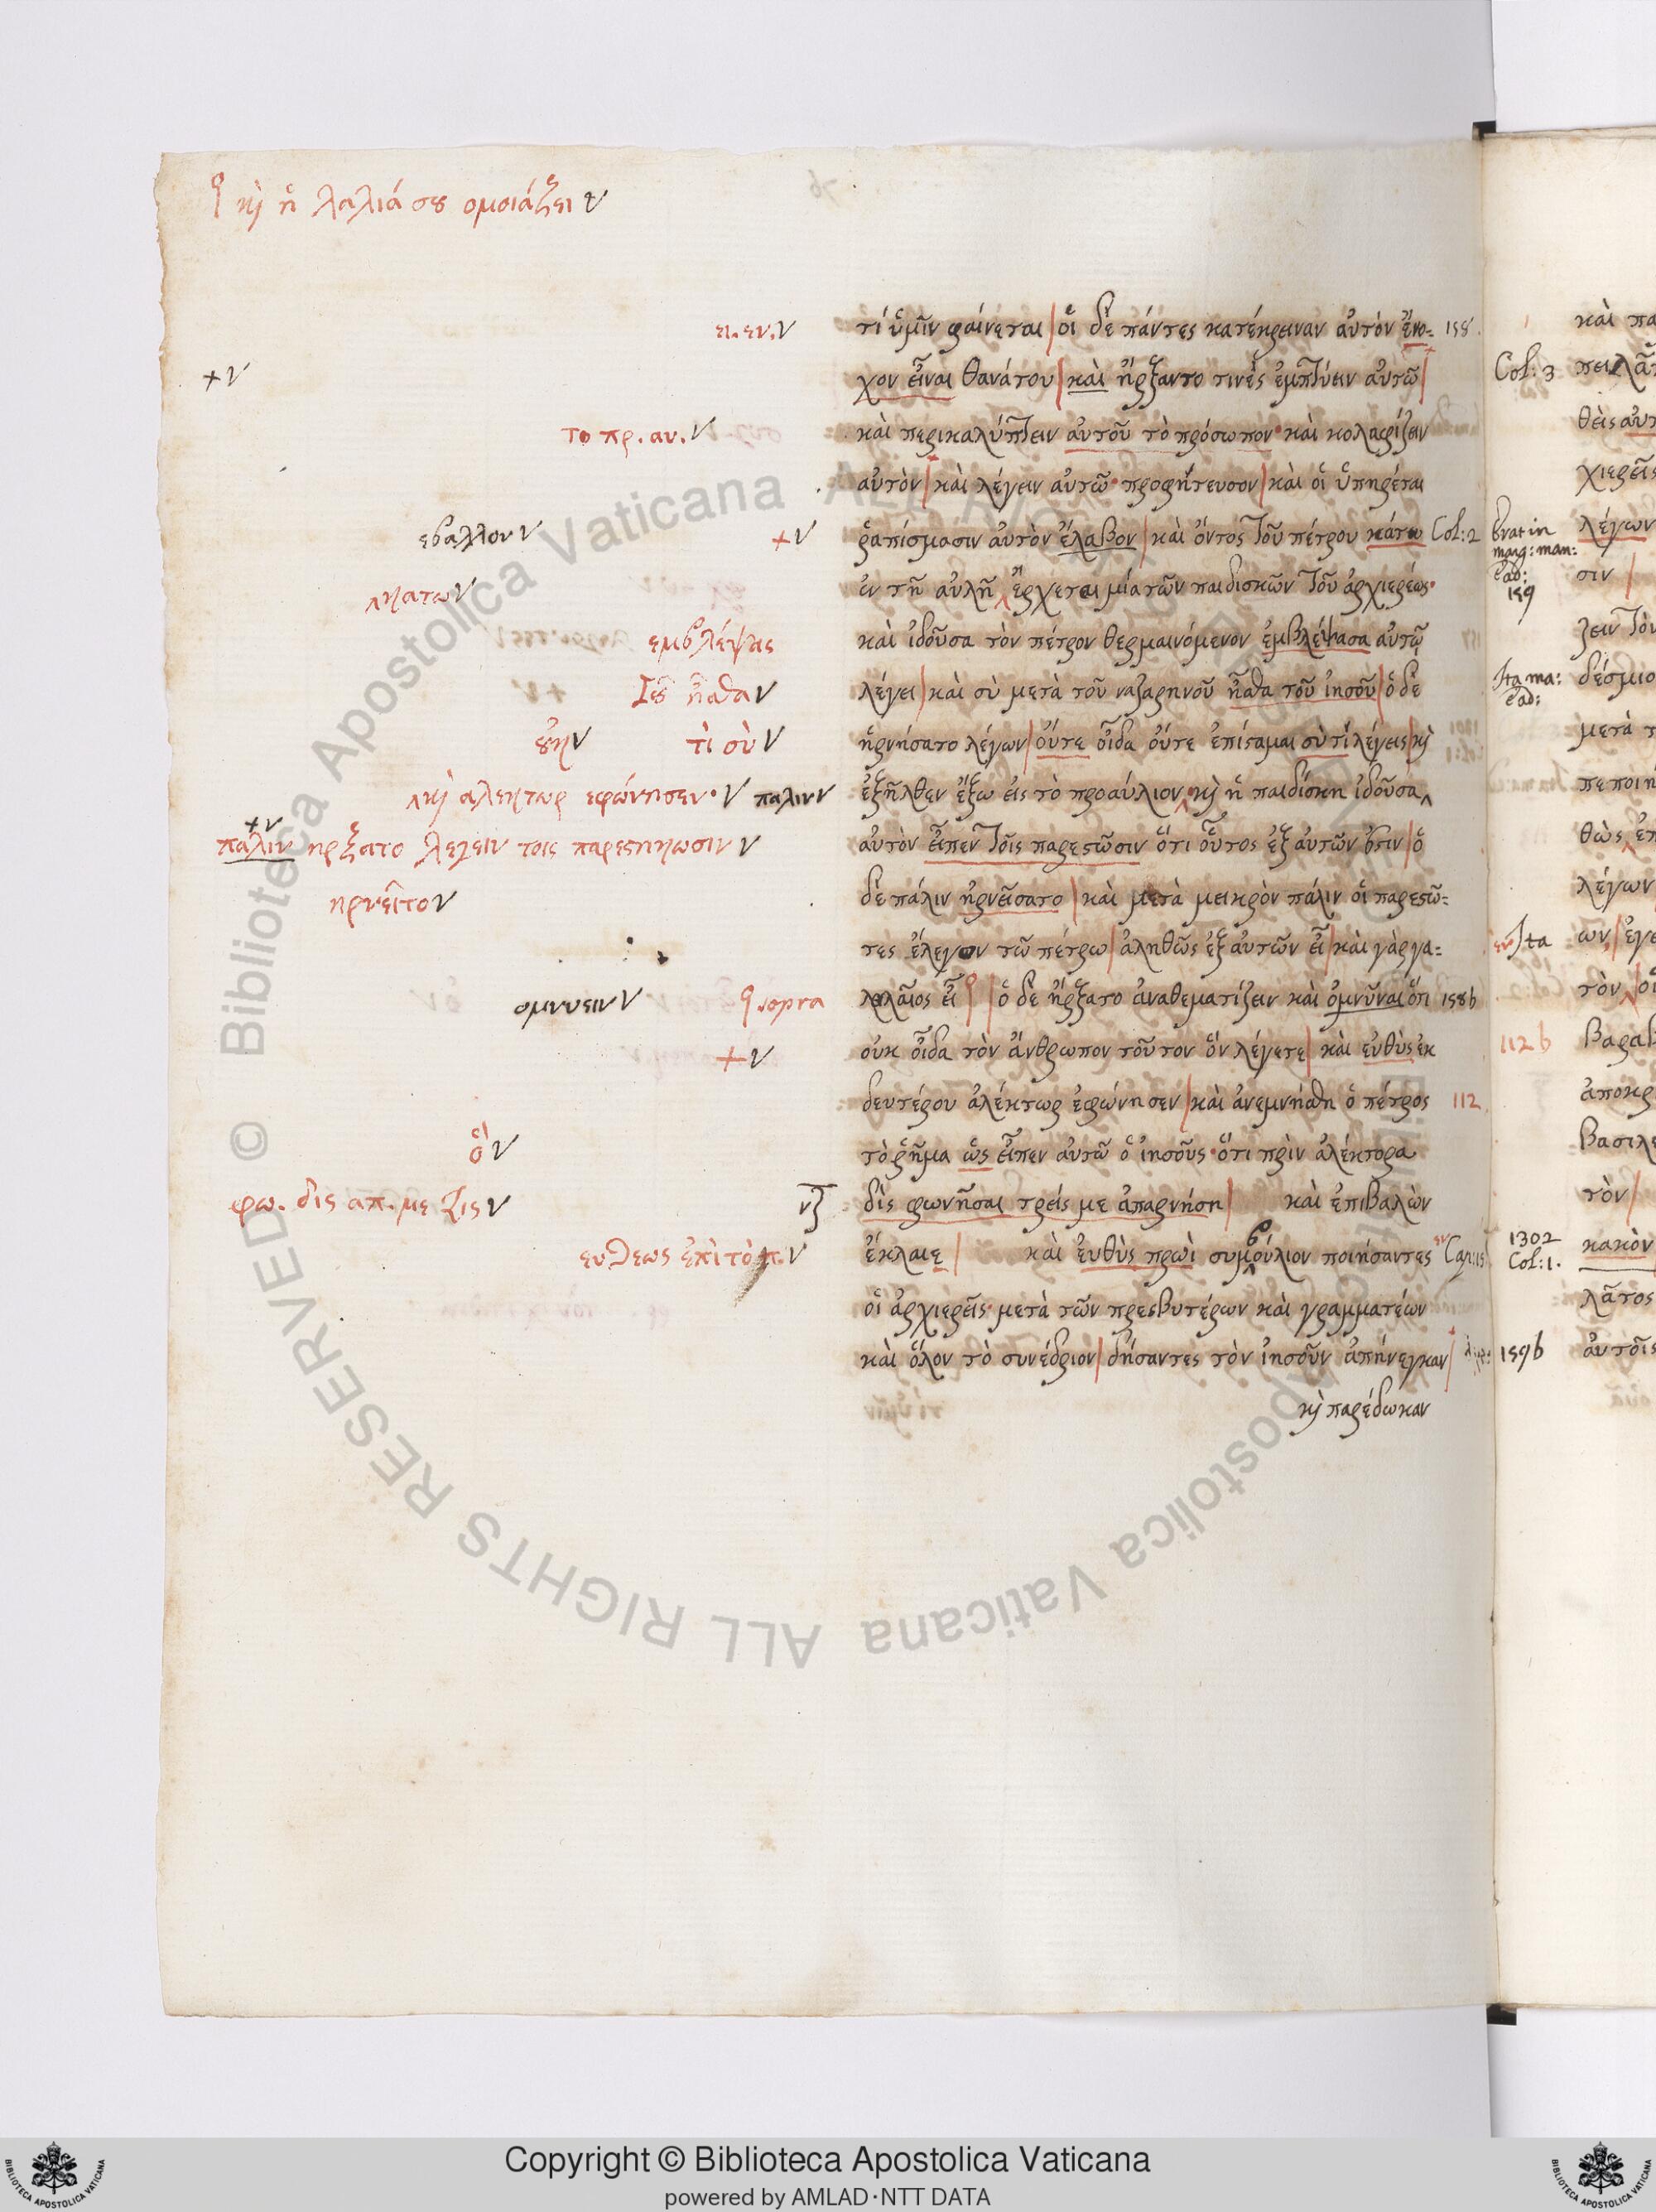 κ̀ ἡ λαλιά σȣ ομοιάζει ν
ει. εν. ν
τί ὑμῖν φαίνεται | οἱ δὲ πάντες κατέκρειναν αὐτὸν ἔνο= 158.
+ ν
χον εἶναι θανάτου | καὶ ἤρξαντο τινὲς ἐμπτύειν αὐτῶ |
το πρ. αυ. ν
καὶ περικαλύπτειν αὐτοῦ τὸ πρόσωπον· καὶ κολαφίζειν
αὐτὸν | καὶ λέγειν αὐτῶ· προφήτευσον | καὶ οἱ ὑπηρέται
εβαλλον ν + ν
ῥαπίσμασιν αὐτὸν ἔλαβον | καὶ ὄντος τοῦ πέτρου κάτω Col: 2
κατω ν
ἐν τῇ αὐλῇ ἔρχεται μία τῶν παιδισκῶν τοῦ ἀρχιερέος·
εμβλέψας
καὶ ἰδοῦσα τὸν πέτρον θερμαινόμενον ἐμβλέψασα αὐτῷ
Ιῦ ἦσθα ν
λέγει | καὶ σὺ μετὰ τοῦ ναζαρηνοῦ ἦσθα τοῦ ἰησοῦ | ὁ δὲ
ȣκ ν τὶ σὺ ν
ἠρνήσατο λέγων | οὔτε οἶδα οὔτε ἐπίσταμαι σὺ τί λέγεις | κ̀
κ̀ αλεκτωρ εφώνησεν· ν παλιν ν
ἐξῆλθεν ἔξω εἰς τὸ προαύλιον κ̀ ἡ παιδίσκη ἰδοῦσα
+ ν
παλιν ηρξατο λεγειν τοις παρεστηκωσιν ν
αὐτὸν εἶπεν τοῖς παρεστῶσιν ὅτι οὗτος ἐξ αὐτῶν ἐστιν | ὁ
ηρνεῖτο ν
δὲ πάλιν ἠρνείσατο | καὶ μετὰ μεικρὸν πάλιν οἱ παρεστῶ=
τες ἔλεγον τῶ πέτρω | ἀληθῶς ἐξ αὐτῶν εἶ | καὶ γὰρ γα=
ομνυειν ν sopra
λιλαῖος εἶ | ὁ δὲ ἤρξατο ἀναθεματίζειν καὶ ὀμνῦναι ὅτι 158b
+ ν
οὐκ οἶδα τὸν ἄνθρωπον τοῦτον ὃν λέγετε | καὶ εὐθὺς ἐκ
δευτέρου ἀλέκτωρ ἐφώνησεν | καὶ ἀνεμνήσθη ὁ πέτρος 112
ὅ ν
τὸ ῥῆμα ὡς εἶπεν αὐτῶ ὁ ἰησοῦς· ὅτι πρὶν ἀλέκτορα
φω. δις απ. με ν
δὶς φωνῆσαι τρείς με ἀπαρνήση | καὶ ἐπιβαλὼν
ευθεως ἐπὶ τὸ π. ν
ἔκλαιε | καὶ εὐθὺς πρωὶ συμβούλιον ποιήσαντες Cap: 15
οἱ ἀρχιερεῖς μετὰ τῶν πρεσβυτέρων καὶ γραμματέων
καὶ ὅλον τὸ συνέδριον | δήσαντες τὸν ἰησοῦν ἀπήνεγκαν |
κ̀ παρέδωκαν
καὶ πα
Col: 3 πειλᾶτ
θεὶς αὐτ
χιερεῖς
Erat in marg: man: ead: 159
λέγων
σιν |
λειν τὸν
Ita ma: ead: δέσμιο
μετὰ τ
πεποιη
θὼς ἐπ
λέγων
Ita ων | ἐγε
τὸν οἱ
112 b Βαραβ
ἀποκρ
βασιλε
τὸν |
1302 Col: 1. κακὸν
λᾶτος
159b αὐτοῖς
© Biblioteca Apostolica Vaticana ALL RIGHTS RESERVED
Copyright © Biblioteca Apostolica Vaticana
powered by AMLAD·NTT DATA
BIBLIOTECA APOSTOLICA VATICANA
BIBLIOTECA APOSTOLICA VATICANA